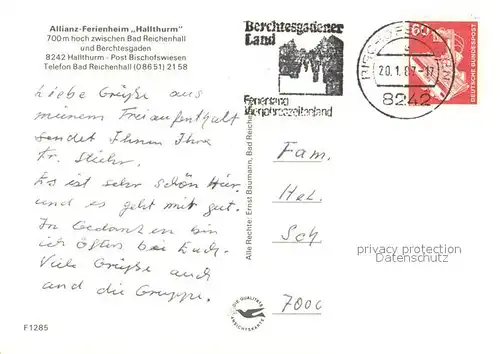 Allianz-Ferienheim „Hallthurm"
700 m hoch zwischen Bad Reichenhall
und Berchtesgaden
8242 Hallthurm - Post Bischofswiesen
Telefon Bad Reichenhall (08651) 2158
Liebe Grüße aus
meinem Freiaufenthalt
sendet Ihnen Ihre
Fr.
Es ist sehr schön hier
und es geht mir gut.
In Gedanken bin
ich öfters bei Euch.
Viele Grüße auch
an die Gruppe.
F1285
Berchtesgadener
Land
Ferienland
Vierjahreszeitenland
20.1.87-17
8242
60
DEUTSCHE BUNDESPOST
Alle Rechte: Ernst Baumann, Bad Reiche
Fam.
Hel.
Sch
7000
privacy protection
Datenschutz
DIE QUALITÄTS
ANSICHTSKARTE